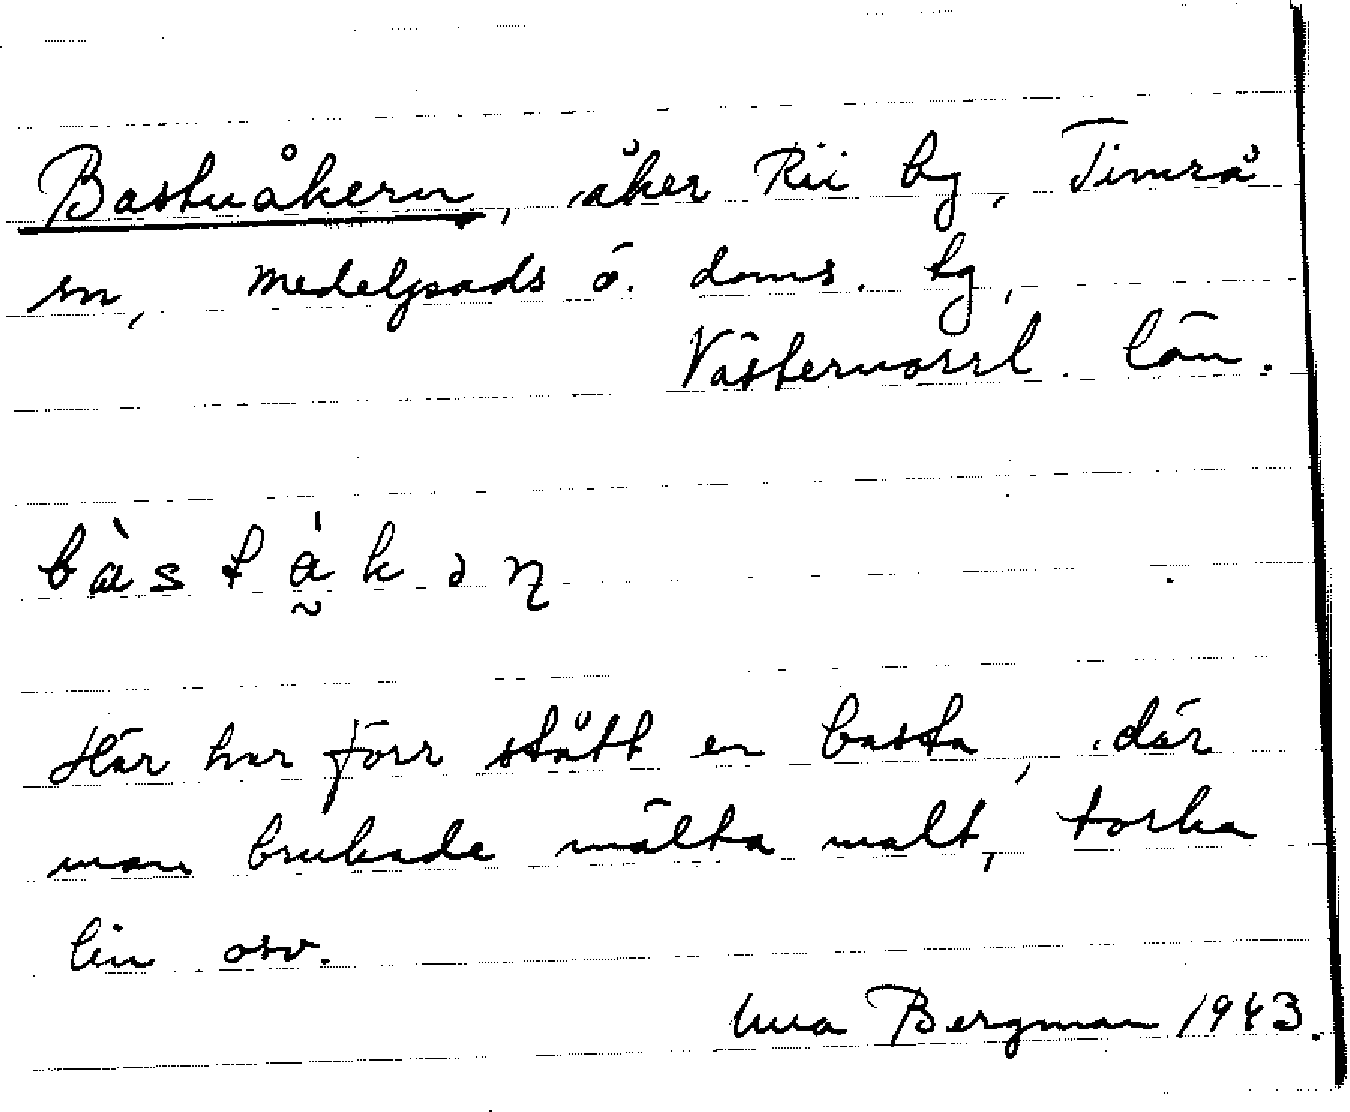 Bastuåkern, åker Rii by, Timrå
sn, Medelpads ö. doms. hg,
Västernorrl. län.
bàstå̀kəɳ
Här har förr stått en basta, där
man brukade mälta malt, torka
lin osv.
Bergman 1943.